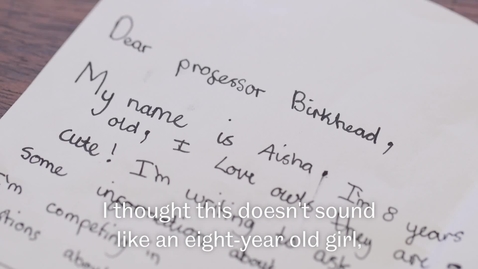 Dear professor Birkhead,
My name is Aisha. I'm 8 years
old, I Love owls, they are
cute! I'm writing to ask
some information about
I'm competing in
about
I thought this doesn't sound
like an eight-year old girl,